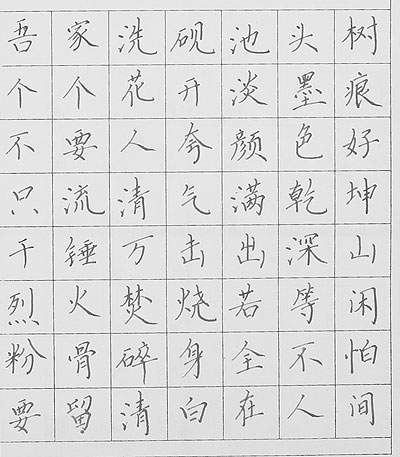 吾家洗砚池头树
个个花开淡墨痕
不要人夸颜色好
只流清气满乾坤
千锤万击出深山
烈火焚烧若等闲
粉骨碎身全不怕
要留清白在人间